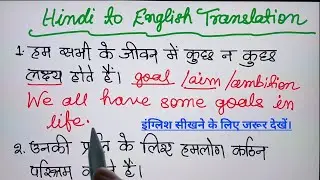 Hindi to English Translation
1. हम सभी के जीवन में कुछ न कुछ
लक्ष्य होते हैं। goal/aim/ambition
We all have some goals in
life.
इंग्लिश सीखने के लिए जरूर देखें।
2. उनकी के लिए हमलोग कठिन
परिश्रम हैं।